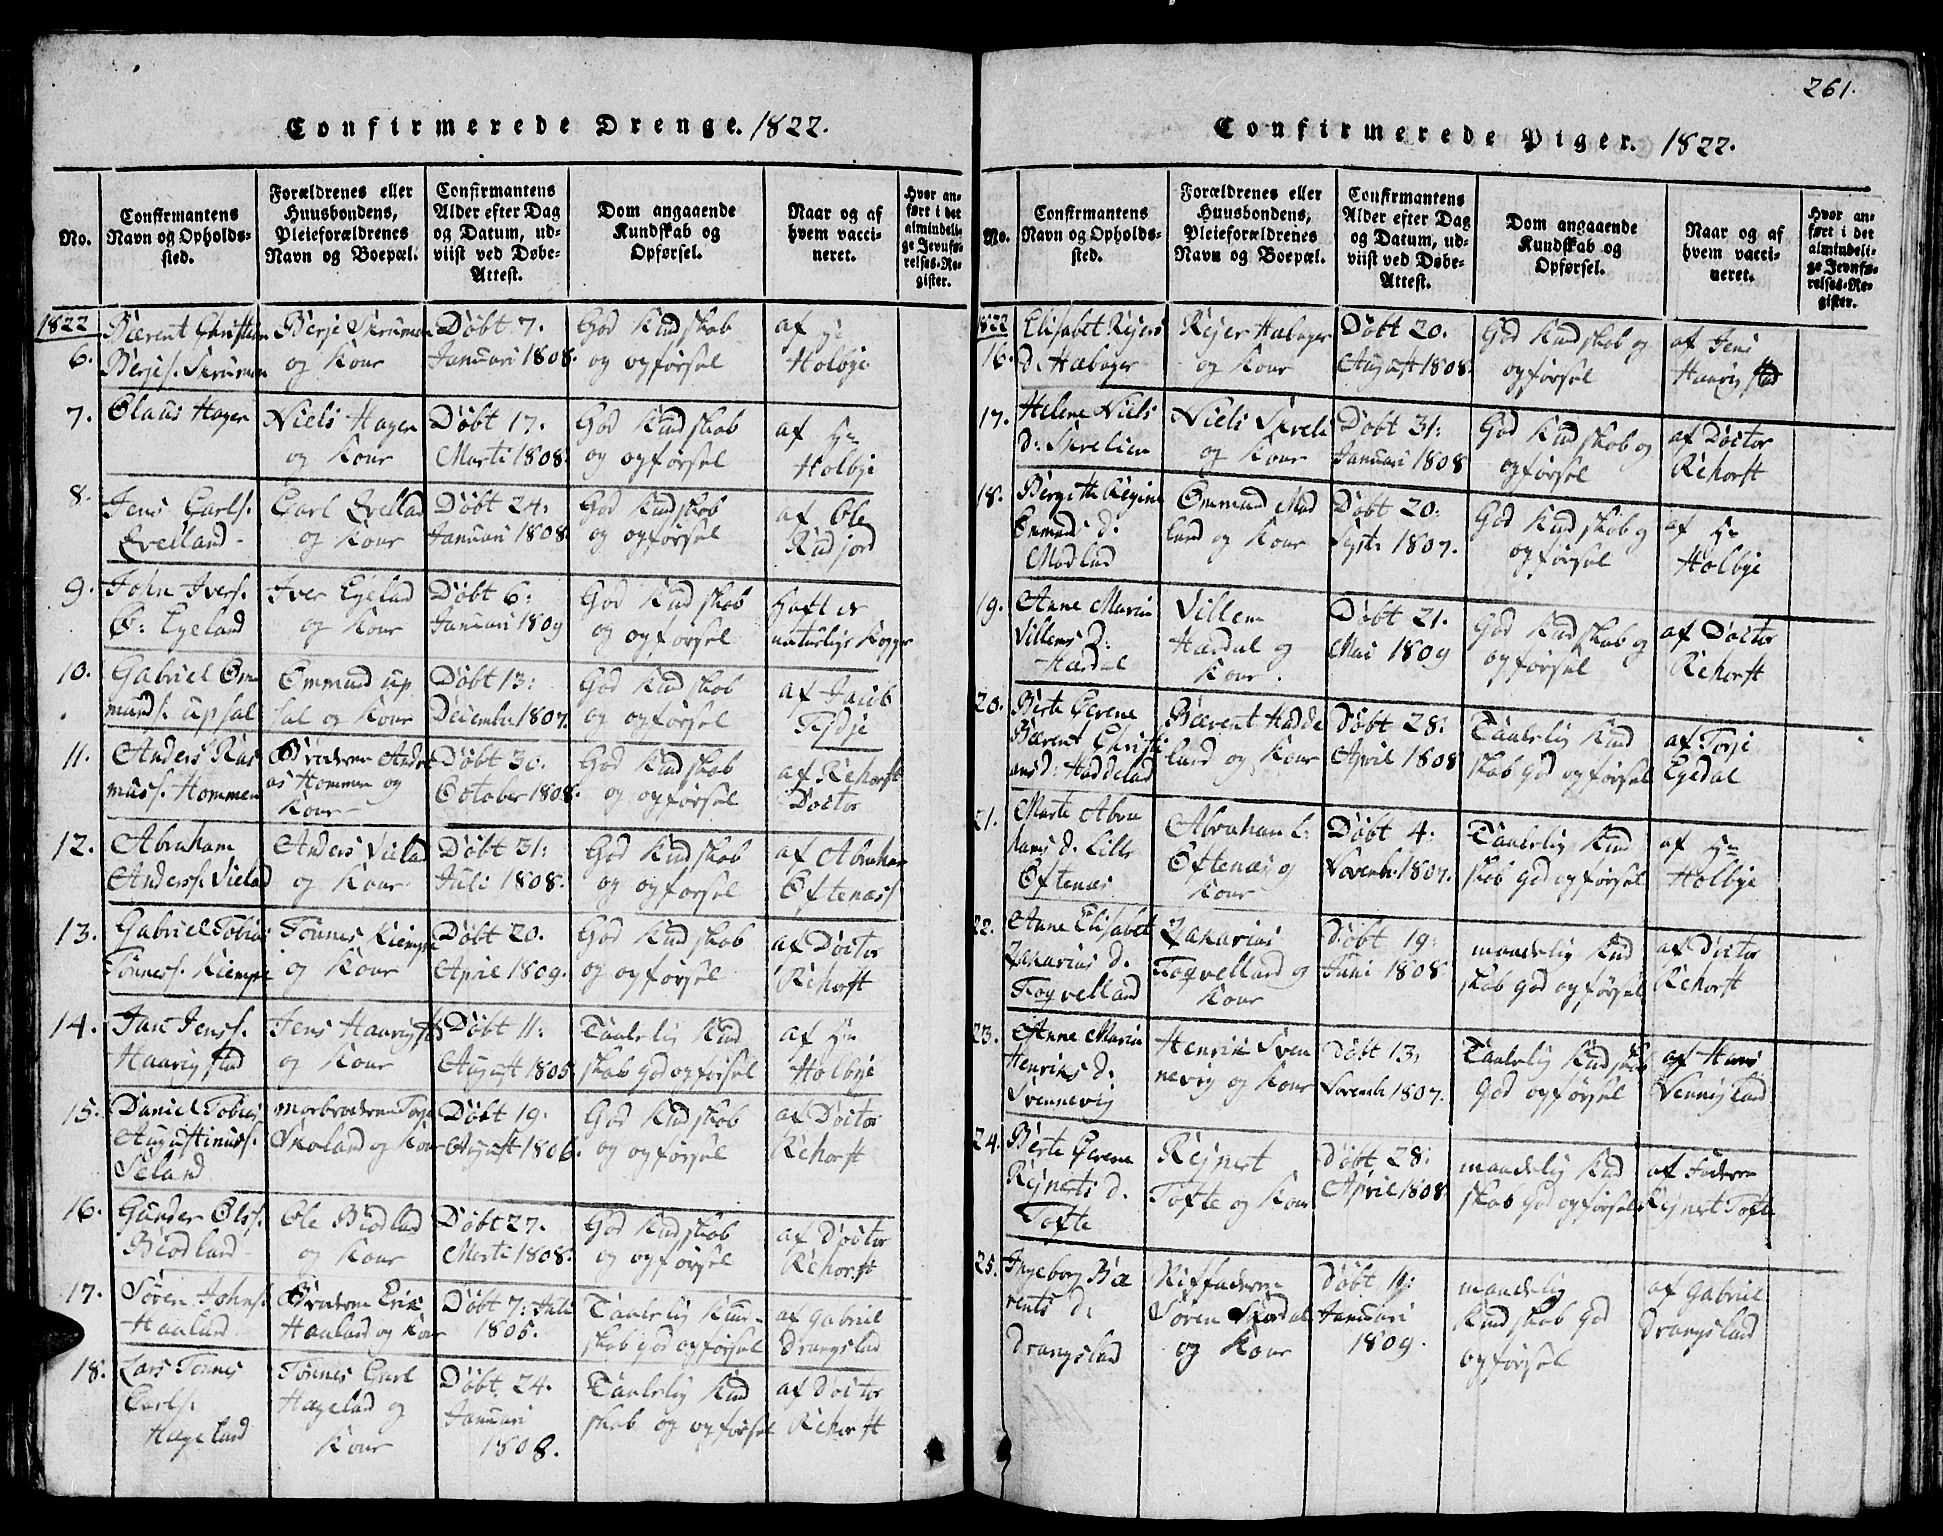 261.
Confirmerede Drenge. 1822.
No.
Confirmantens
Navn og Opholds-
sted.
Forældrenes eller
Huusbondens,
Pleieforældrenes
Navn og Boepæl.
Confirmantens
Alder efter Dag
og Datum, ud-
viist ved Døbe-
Attest.
Dom angaaende
Kundskab og
Opførsel.
Naar og af
hvem vacci-
neret.
Hvor an-
ført i det
almindeli-
ge Jevnfø-
relses-Re-
gister.
1822
6.
Bærent Christian
Berjes.
Berje
og Kone
Døbt 7.
Januari 1808.
God Kundskab
og opførsel
af Hr
Holbye
7.
Olaus Hager
Niels Hager
og Kone
Døbt 17.
Marti 1808.
God Kundskab
og opførsel
af Hr
Holbye
8.
Jens Carls.
Qveiland
Carl
og Kone
Døbt 24:
Januari 1808.
God Kundskab
og opførsel
af Ole
Rudjord
9.
John Ivers.
Ø: Egeland
Iver Egeland
og Kone
Døbt 6:
Januari 1809
God Kundskab
og opførsel
Haft de
naturlige Kopper
10.
Gabriel Om
munds. Upsal
Ommund Up
sal og Kone
Døbt 13:
December 1807.
God Kundskab
og opførsel
af Jacob
11.
Anders Ras
muss. Hommen
Broderen Andre
as Hommen og
Kone
Døbt 30.
October 1808.
God Kundskab
og opførsel
af Rehorst
Doctor
12.
Abraham
Anderss.
Anders
og Kone
Døbt 31:
Juli 1808.
God Kundskab
og opførsel
af Abraham
Øftenæss
13.
Gabriel Tobias
Tønness.
Tønnes
og Kone
Døbt 20.
April 1809.
God Kundskab
og opførsel
af Doctor
Rehorst
14.
Jenss.
Haarigstad
Jens Haarigstd
og Kone
Døbt 11:
August 1805
Taalelig Kund
skab God opførsel
af Hr
Holbye
15.
Daniel Tobias
Augustinuss.
Seland
Morbroderen Torje
Skoland og Kone
Døbt 19.
August 1806.
God Kundskab
og opførsel
af Doctor
Rehorst
16.
Gunder Olss.
Biodland
Ole Biodland
og Kone
Døbt 27.
Marti 1808.
God Kundskab
og opførsel
af Doctor
Rehorst
17.
Søren Johns.
Haaland
Broderen Erik
Haaland og Kone
Døbt 7: Juli
1805.
Taalelig Kund-
skab god opførsel
af Gabriel
Drangsland
18.
Lars Tønnes
Carls.
Hageland
Tønnes Carl
Hageland og
Kone
Døbt 24.
Januari
1808.
Taalelig Kund
skab og opførsel
af Doctor
Rehorst
Confirmerede Piger. 1822.
No.
Confirmantens
Navn og Opholds-
sted.
Forældrenes eller
Huusbondens,
Pleieforældrenes
Navn og Boepæl.
Confirmantens
Alder efter Dag
og Datum, ud-
viist ved Døbe-
Attest.
Dom angaaende
Kundskab og
Opførsel.
Naar og af
hvem vacci-
neret.
Hvor an-
ført i det
almindeli-
ge Jevnfø-
relses-Re-
gister.
1822
16.
Elisabet Rejers
d.
Rejer
og Kone
Døbt 20.
August 1808
God Kundskab og
opførsel
af Jens
Haarigstad
17.
Helene Niels
d:
Niels
og Kone
Døbt 31:
Januari 1808
God Kundskab og
opførsel
af Doctor
Rehorst
18.
Bergitte Regine
Ommunds d:
Modland
Ommund Mod
land og Kone
Døbt 20:
1807.
God Kundskab og
opførsel
af Hr
Holbye
19.
Anne Maria
Villems d:
Hædal
Villem
Hædal og
Kone.
Døbt 21.
Mai 1809
God Kundskab og
opførsel
af Doctor
Rehorst
20.
Berte Serene
Bærent Christi
ans d: Haddeland
Bærent Hadde
land og Kone
Døbt 28:
April 1808
Taalelig Kund
skab God opførsel
af Torje
Egedal
21.
Marte Abra
hams d. Lille
Øftenæs
Abraham L:
Øftenæs og
Kone
Døbt 4:
November 1807.
Taalelig Kund
skab God opførsel
af Hr
Holbye
22.
Anne Elisabet
Zakarias d.
Fogvelland
Zakarias
Fogvelland og
Kone
Døbt 19:
Juni 1808
maadelig Kund
skab God opførsel
af Doctor
Rehorst
23.
Anne Maria
Henriks d.
Svennevig
Henrik Sven
nevig og Kone
Døbt 13:
November 1807.
Taalelig Kundskab
God opførsel
af Hans
24.
Berte Serene
Rejnerts d.
Tofte
Rejnert
Tofte og Kone
Døbt 28:
April 1808
maadelig Kund
skab God opførsel
af Faderen
Rejnert Tofte
25.
Ingeborg Bæ
rents d:
Drangsland
Stiffaderen
Søren
og Kone
Døbt 11:
Januari
1809.
maadelig
Kundskab God
opførsel
af Gabriel
Drangsland